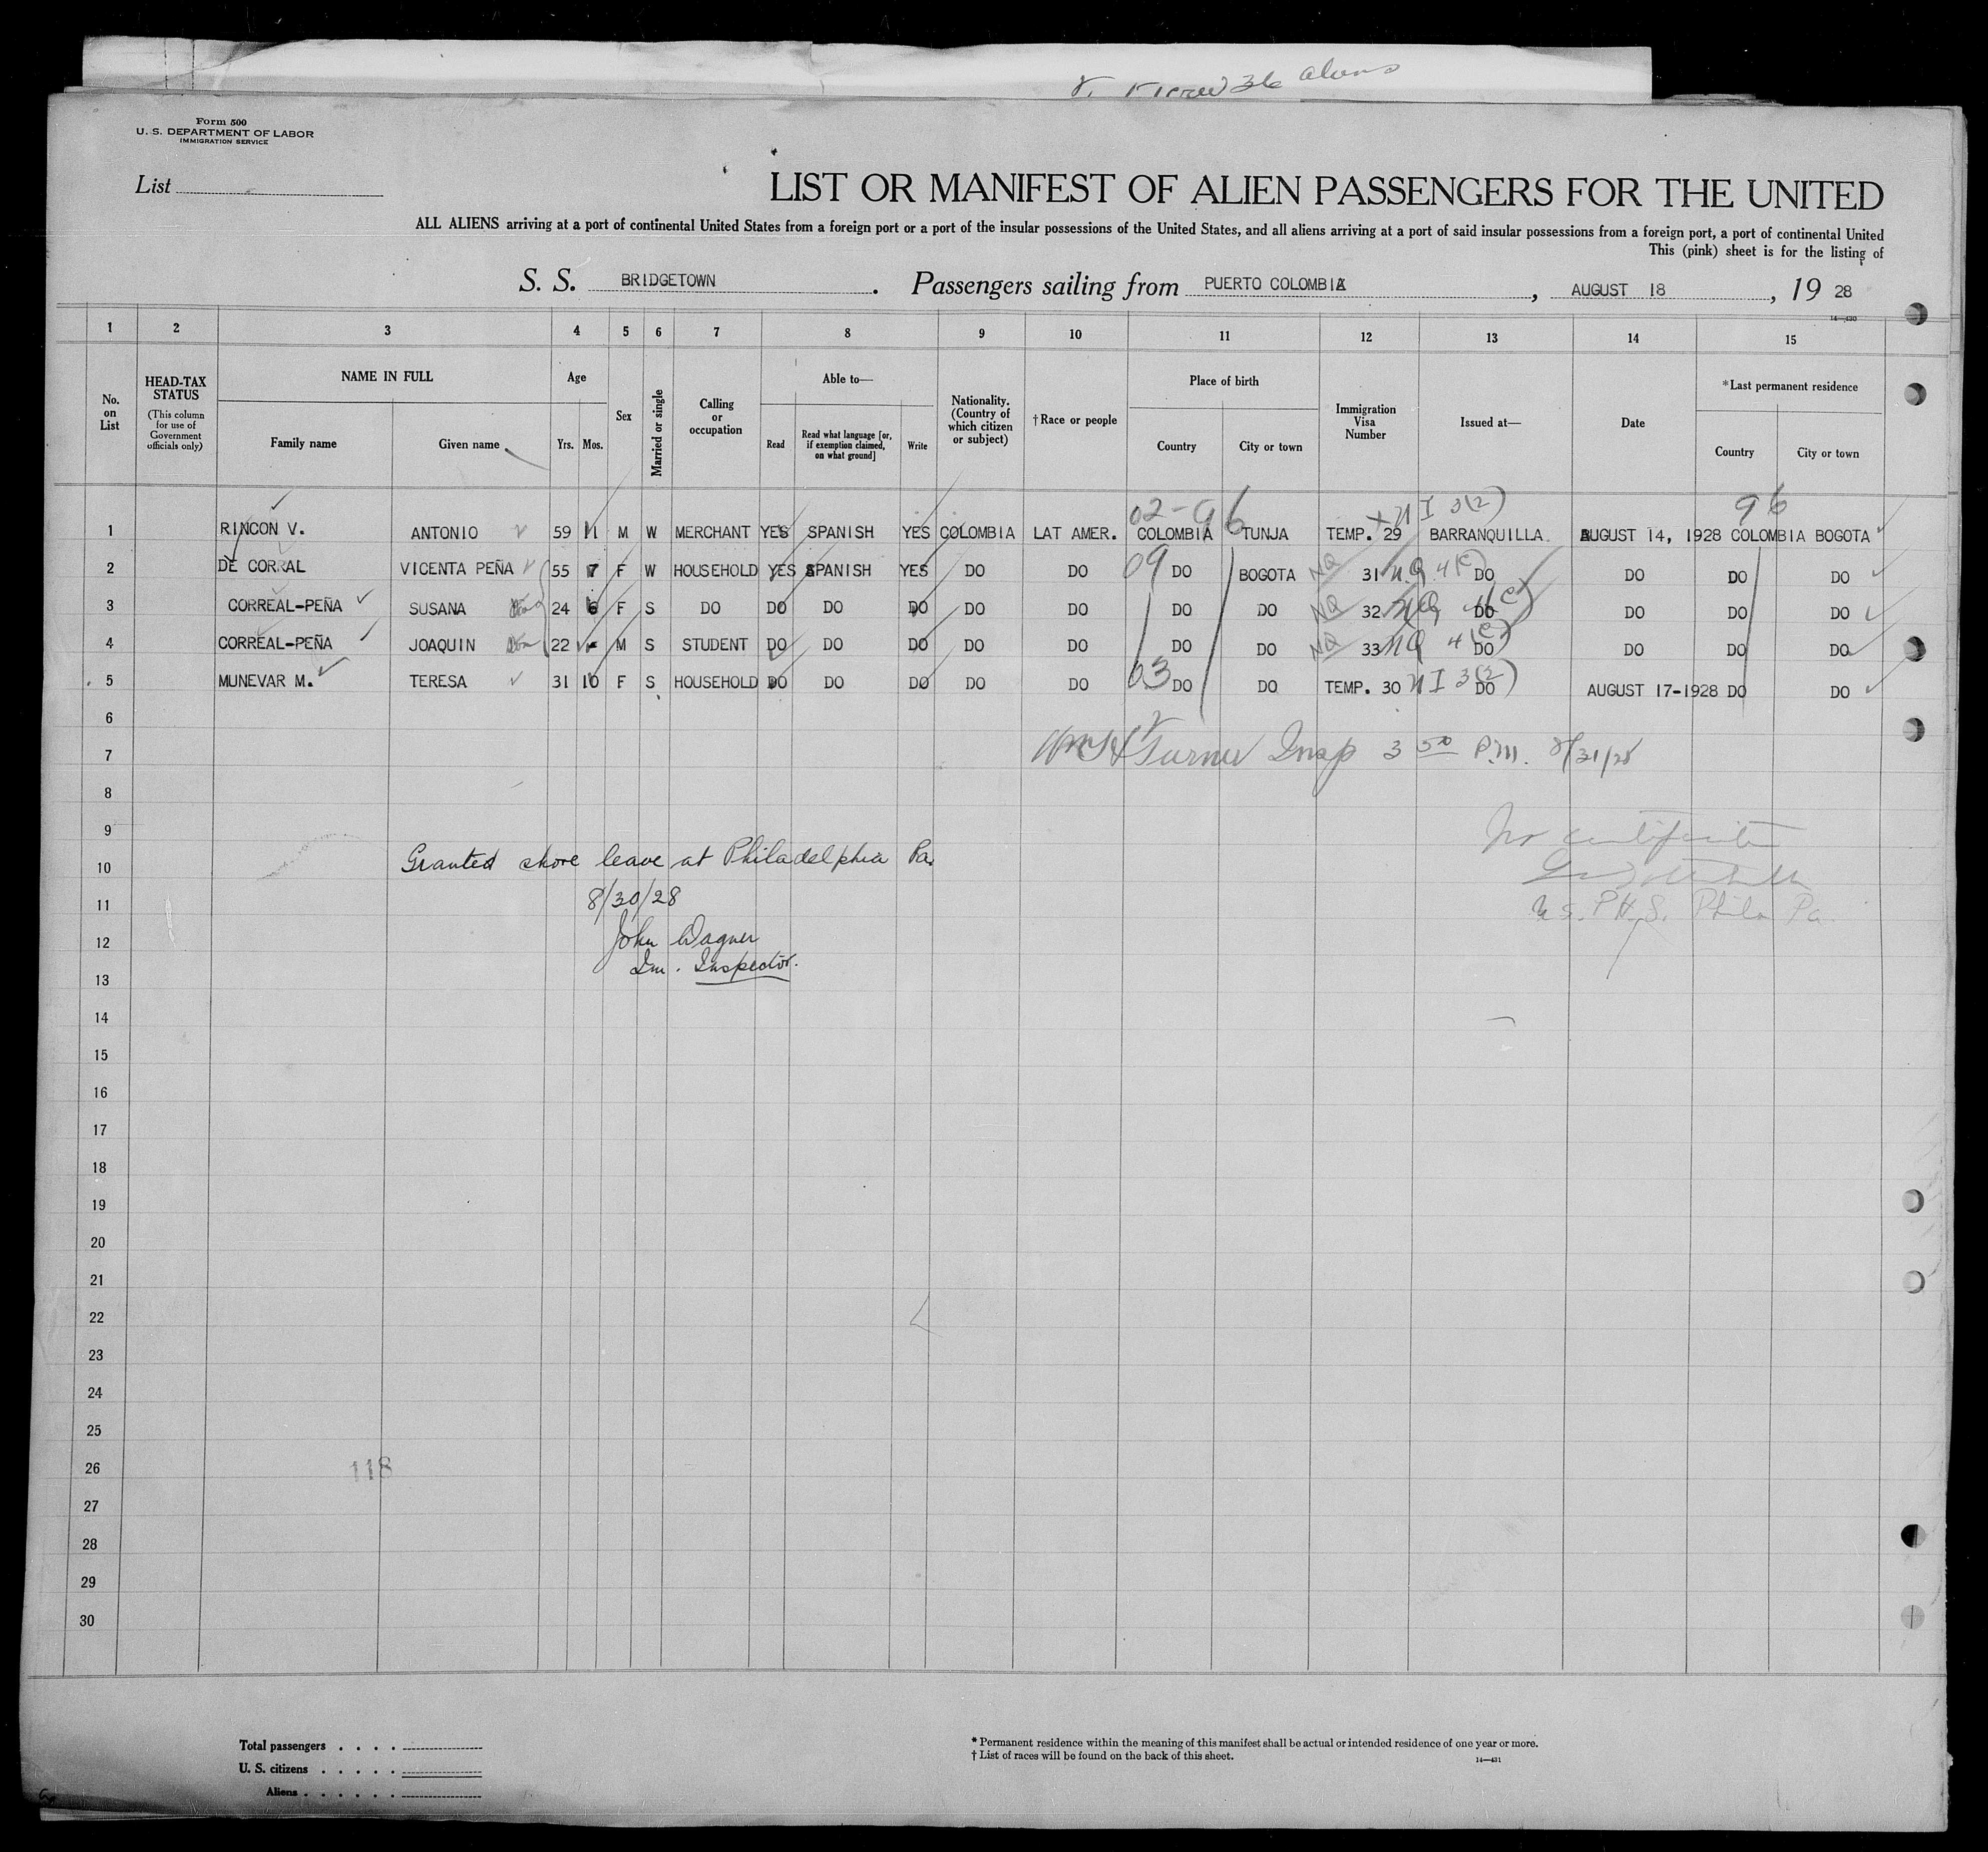 Aliens
Form 500
U. S. DEPARTMENT OF LABOR
IMMIGRATION SERVICE
List
LIST OR MANIFEST OF ALIEN PASSENGERS FOR THE UNITED
ALL ALIENS arriving at a port of continental United States from a foreign port or a port of the insular possessions of the United States, and all aliens arriving at a port of said insular possessions from a foreign port, a port of continental United
This (pink) sheet is for the listing of
S. S. BRIDGETOWN. Passengers sailing from PUERTO COLOMBIA, AUGUST 18, 19 28
14—430
1 2 3 4 5 6 7 8 9 10 11 12 13 14 15
No. on List
HEAD-TAX STATUS
(This column for use of Government officials only)
NAME IN FULL
Family name
Given name
Age
Yrs.
Mos.
Sex
Married or single
Calling or occupation
Able to—
Read
Read what language [or, if exemption claimed, on what ground]
Write
Nationality. (Country of which citizen or subject)
†Race or people
Place of birth
Country
City or town
Immigration Visa Number
Issued at—
Date
*Last permanent residence
Country
City or town
02-96 I 3(2) 96
1 RINCON V. ANTONIO 59 11 M W MERCHANT YES SPANISH YES COLOMBIA LAT AMER. COLOMBIA TUNJA TEMP. 29 BARRANQUILLA AUGUST 14, 1928 COLOMBIA BOGOTA
2 DE CORRAL VICENTA PEÑA 55 7 F W HOUSEHOLD YES SPANISH YES DO DO 09 DO BOGOTA NQ 31 N.Q 4(C) DO DO DO DO
3 CORREAL-PEÑA SUSANA 24 6 F S DO DO DO DO DO DO DO DO NQ 32 NQ 4(C) DO DO DO DO
4 CORREAL-PEÑA JOAQUIN 22 M S STUDENT DO DO DO DO DO DO DO NQ 33 NQ 4(C) DO DO DO DO
5 MUNEVAR M. TERESA 31 10 F S HOUSEHOLD DO DO DO DO DO 03 DO DO TEMP. 30 I 3(2) DO AUGUST 17-1928 DO DO
6
7 Wm H Turner Insp 3 50 P.M. 8/31/28
8
9 No certificates
10 Granted shore leave at Philadelphia Pa.
11 8/30/28 U.S. P.H.S. Phila Pa.
12 John Wagner
Im. Inspector.
13
14
15
16
17
18
19
20
21
22
23
24
25
26 118
27
28
29
30
Total passengers
U. S. citizens
Aliens
* Permanent residence within the meaning of this manifest shall be actual or intended residence of one year or more.
† List of races will be found on the back of this sheet.
14—431